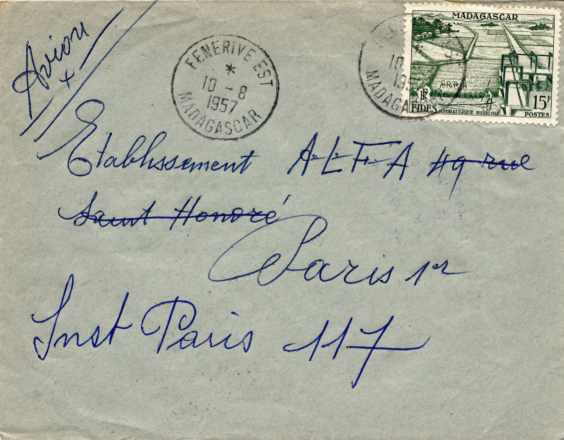 Avion
FENERIVE EST
10 - 8
1957
MADAGASCAR
10
MADAGASCAR
RF
FIDES
15F
POSTES
Etablissement A-L-F-A 49 rue
Saint Honoré
Paris 1er
Inst Paris 117